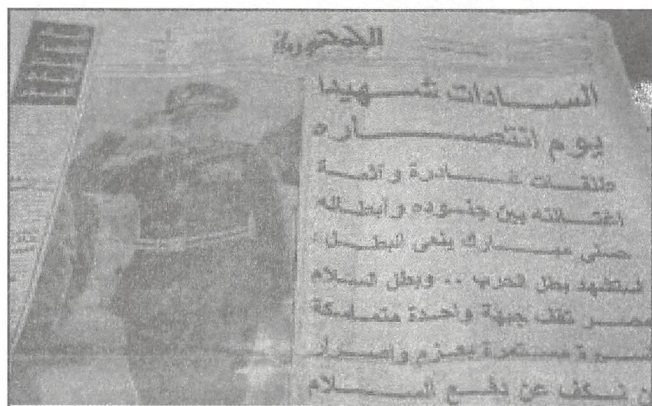 الجمهورية
الســادات شــهيدا
يوم انتصــاره
طلقــات غــادرة وآثمــة
اغتــالته بين جنــوده وأبطــاله
حسني مبــارك ينعى البطــل :
استشهد بطل الحرب .. وبطل الســلام
مصــر تقف جبهة واحدة متماسكة
مستمرة بعــزم وإصــرار
نكــف عن دفــع الســلام